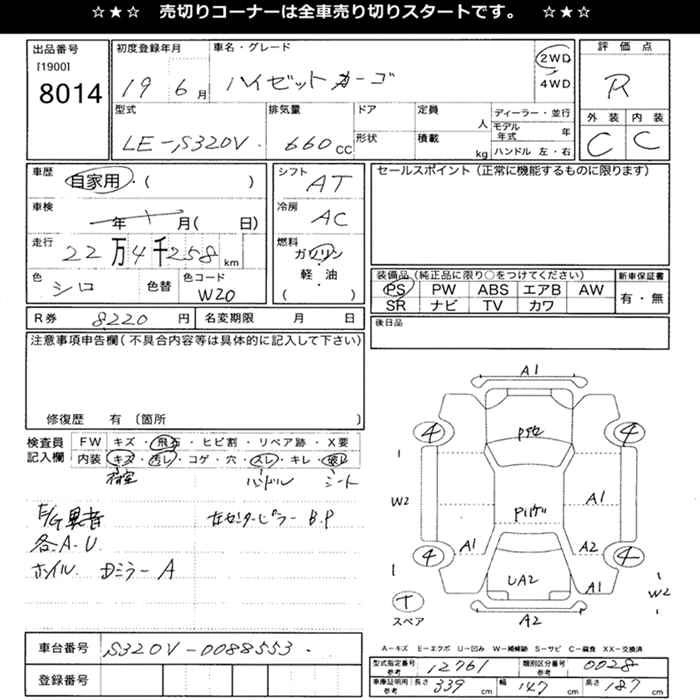 ☆★☆ 売切りコーナーは全車売り切りスタートです。 ☆★☆
出品番号
[1900]
8014
初度登録年月
19 6月
車名・グレード
ハイゼットカーゴ
2WD
4WD
評価点
R
外装 内装
C C
型式
LE-S320V
排気量
660cc
ドア
形状
定員
人
積載
kg
ディーラー・並行
モデル年式 年
ハンドル 左・右
車歴
自家用・( )
車検
年 月( 日)
走行
22万4千258km
色
シロ
色替
色コード
W20
シフト
AT
冷房
AC
燃料
ガソリン
・
軽・油
( )
セールスポイント(正常に機能するものに限ります)
装備品(純正品に限り○をつけてください)
PS PW ABS エアB AW
SR ナビ TV カワ
新車保証書
有・無
R券 8220円
名変期限 月 日
後日品
注意事項申告欄(不具合内容等は具体的に記入して下さい)
修復歴 有〔箇所 〕
検査員
記入欄
FW キズ・飛石・ヒビ割・リペア跡・X要
内装 キズ・汚レ・コゲ・穴・スレ・キレ・破レ
荷室 ハンドル シート
E/G異音
各A.U
ホイル Dミラー A
左センターピラー B.P
A1
4 4
W2
A1
A1 A2
4 4
UA2
A1
W2
A2
T
スペア
車台番号 S320V-0088553
登録番号
A-キズ E-エクボ U-凹み W-補修跡 S-サビ C-腐食 XX-交換済
型式指定番号 参考 12761
類別区分番号 参考 0028
車庫証明用 参考 長さ 339cm 幅 147cm 高さ 187cm